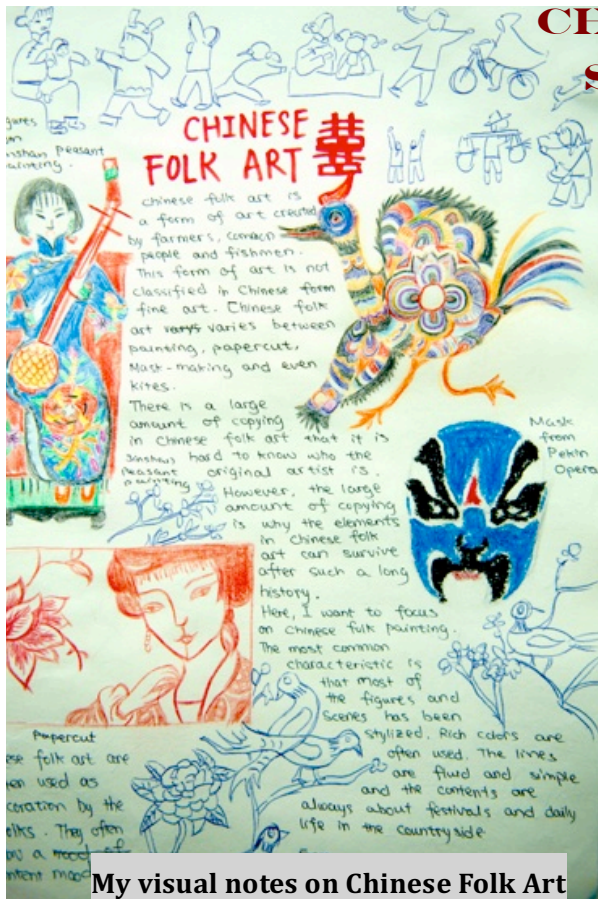 CH
S
CHINESE 囍
FOLK ART
chinese folk art is
a form of art created
by farmers, comaon
people and fishmen.
This form of art is not
classified in Chinese form
fine art. Chinese folk
art varys varies between
painting, papercut,
Mask-making and even
kites.
There is a large
amount of copying
in Chinese folk art that it is
hard to know who the
original artist is.
However, the large
amount of copying
is why the elements
in Chinese folk
art can survive
after such a long
history.
Here, I want to focus
on Chinese folk painting.
The most common
characteristic is
that most of
the figures and
scenes has been
stylized. Rich colors are
often used. The lines
are fluid and simple
and the contents are
always about festivals and daily
life in the countryside
gures
nshan Peasant
ainting.
Jinshan
Peasant
painting
Mask
from
Pekin
Opera
Papercut
ese folk art are
en used as
coration by the
olks. They often
a mood of
ntent mood
My visual notes on Chinese Folk Art